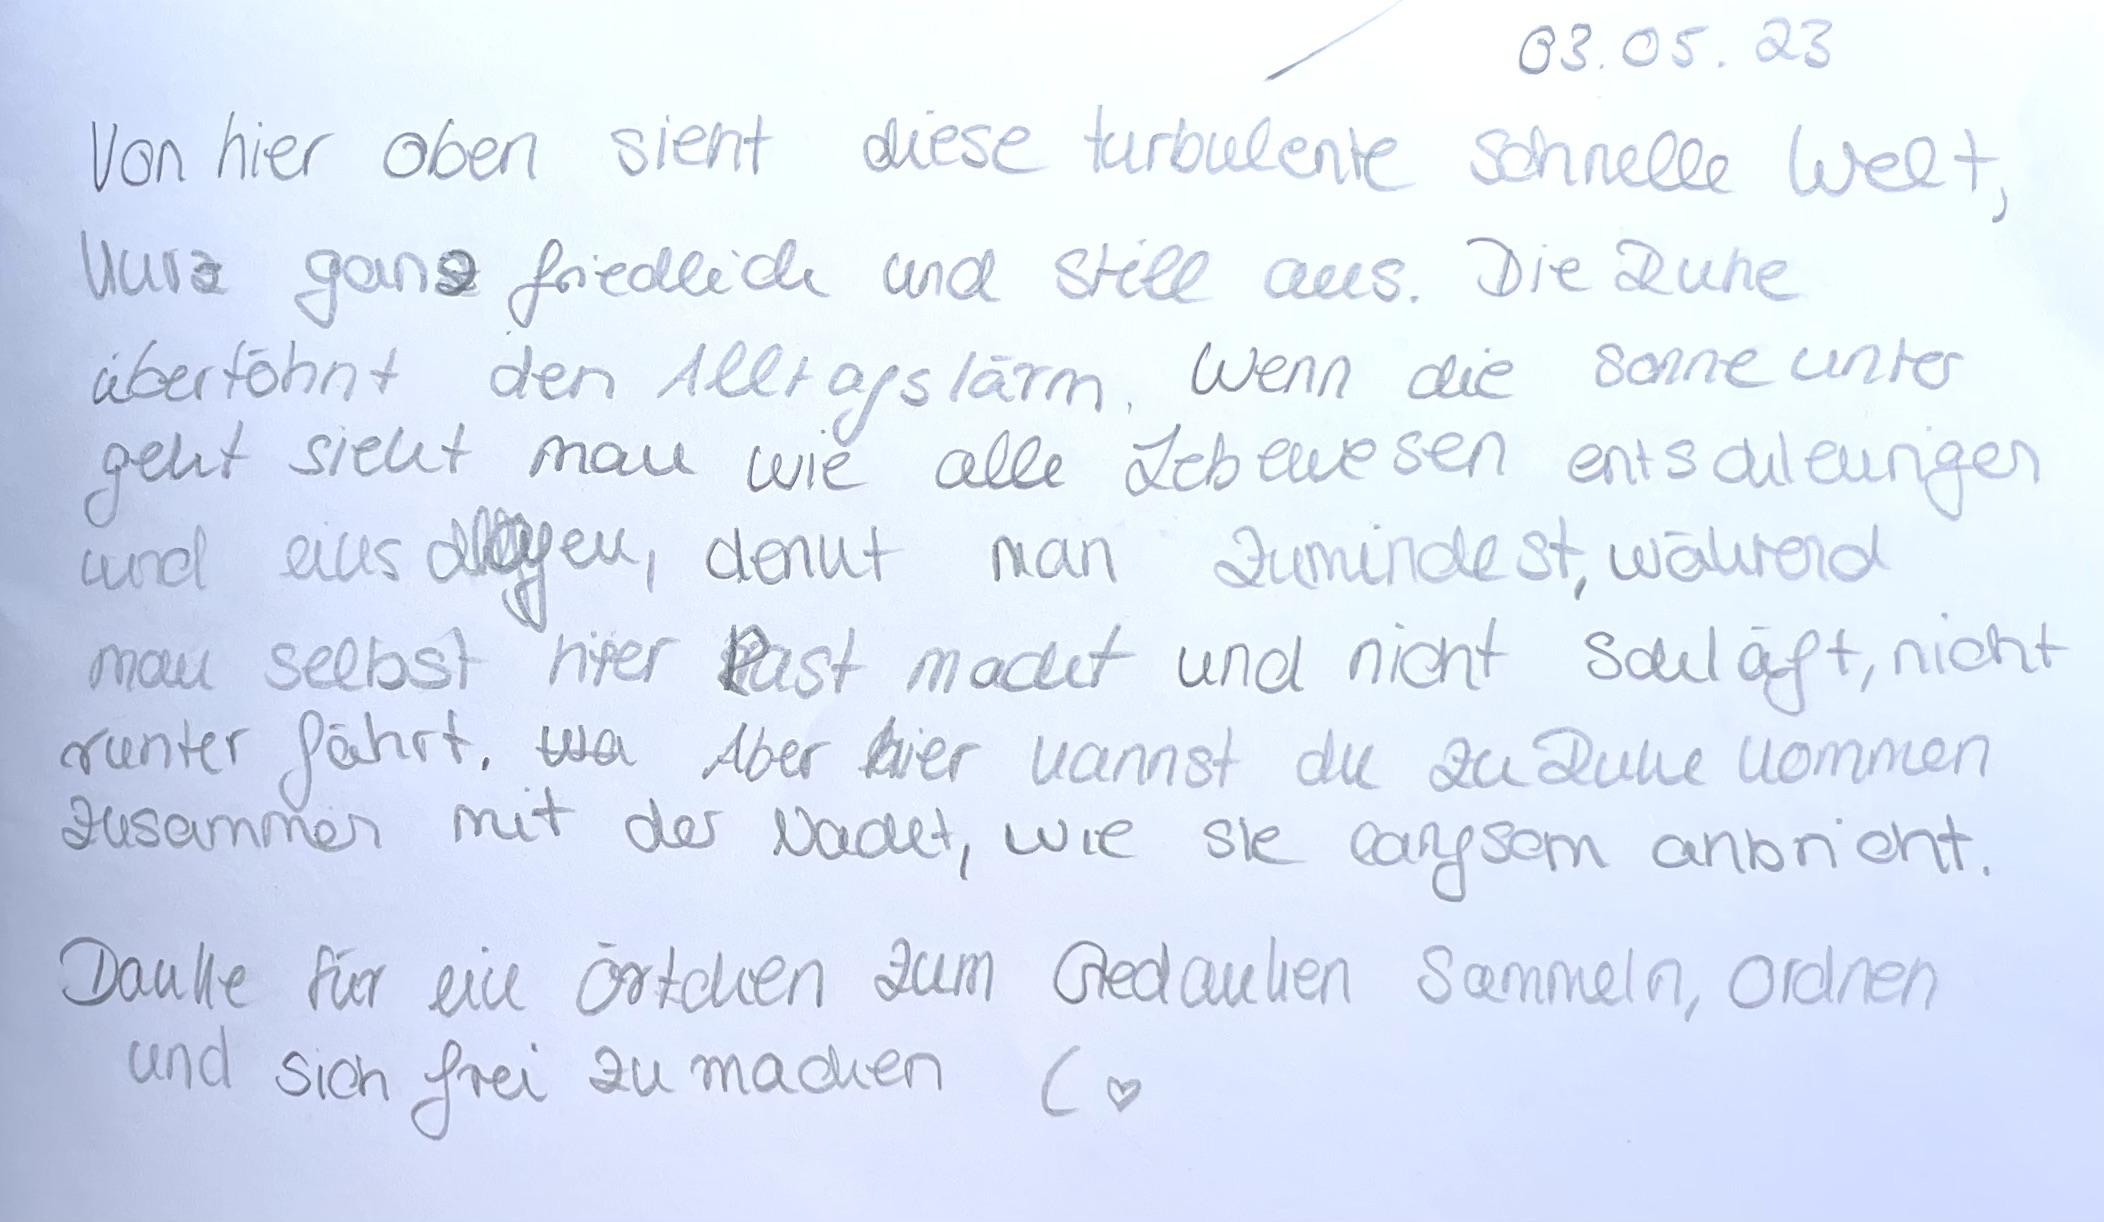 03.05.23
Von hier oben sieht diese turbulente schnelle Welt,
kurz ganz friedlich und still aus. Die Ruhe
übertöhnt den Alltagslärm. Wenn die Sonne unter
geht sieht man wie alle Lebewesen entschleunigen
und denkt man zumindest, während
man selbst hier Rast macht und nicht schläft, nicht
runter fährt. Aber hier kannst du zu Ruhe kommen
zusammen mit der Nacht, wie sie langsam anbricht.
Danke für ein Örtchen zum Gedanken Sammeln, ordnen
und sich frei zu machen